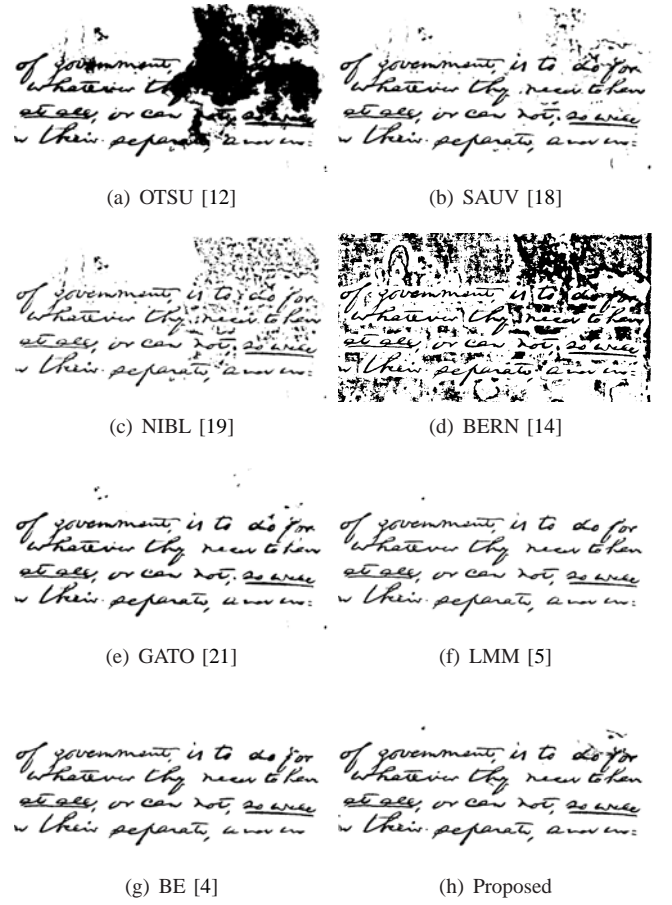 of government,
whatever
at all, or can not, so well
their separate, and in:
(a) OTSU [12]
of government, is to do for
whatever they need to have
at all, or can not, so well
their separate, and in:
(b) SAUV [18]
of government, is to do for
whatever they need to have
at all, or can not, so well
their separate, and in:
(c) NIBL [19]
of government, is to do for
whatever they need to have
at all, or can not, so well
their separate, and in:
(d) BERN [14]
of government, is to do for
whatever they need to have
at all, or can not, so well
their separate, and in:
(e) GATO [21]
of government, is to do for
whatever they need to have
at all, or can not, so well
their separate, and in:
(f) LMM [5]
of government, is to do for
whatever they need to have
at all, or can not, so well
their separate, and in
(g) BE [4]
of government, is to do for
whatever they need to have
at all, or can not, so well
their separate, and in:
(h) Proposed